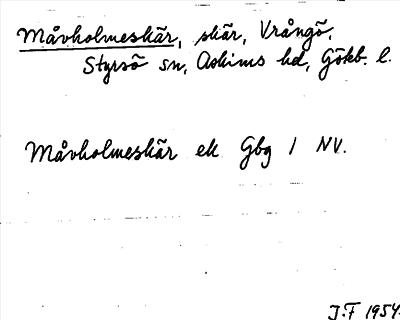 Måvholmeskär, skär, Vrångö,
Styrsö sn, Askims hd, Göteb. l.
Måvholmeskär ek Gbg 1 NV.
J.F 1954.